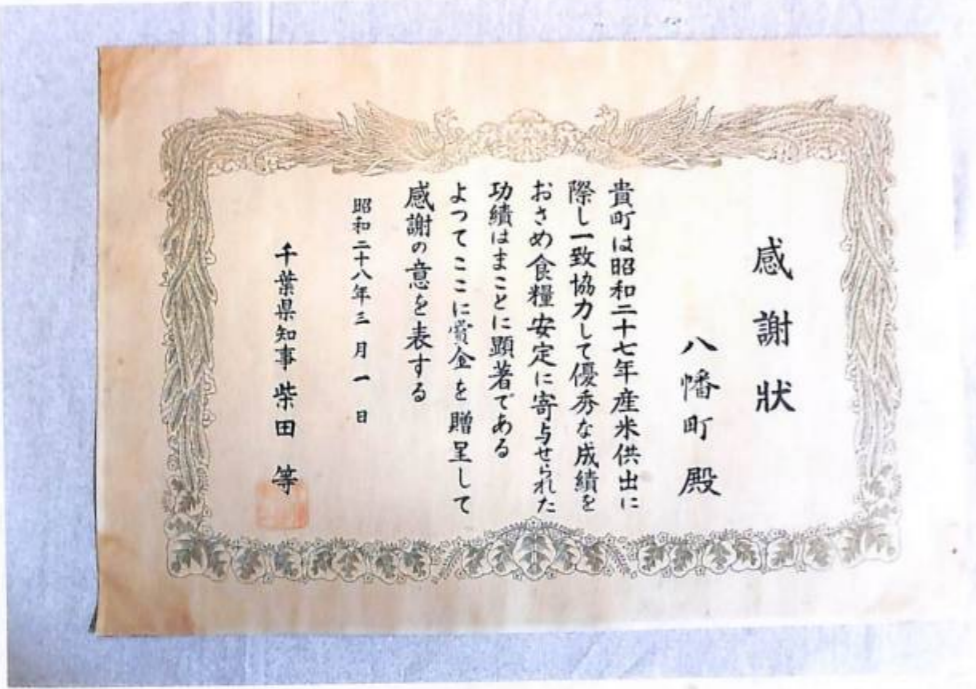 感謝状
八幡町殿
貴町は昭和二十七年産米供出に
際し一致協力して優秀な成績を
おさめ食糧安定に寄与せられた
功績はまことに顕著である
よつてここに賞金を贈呈して
感謝の意を表する
昭和二十八年三月一日
千葉県知事 柴田 等